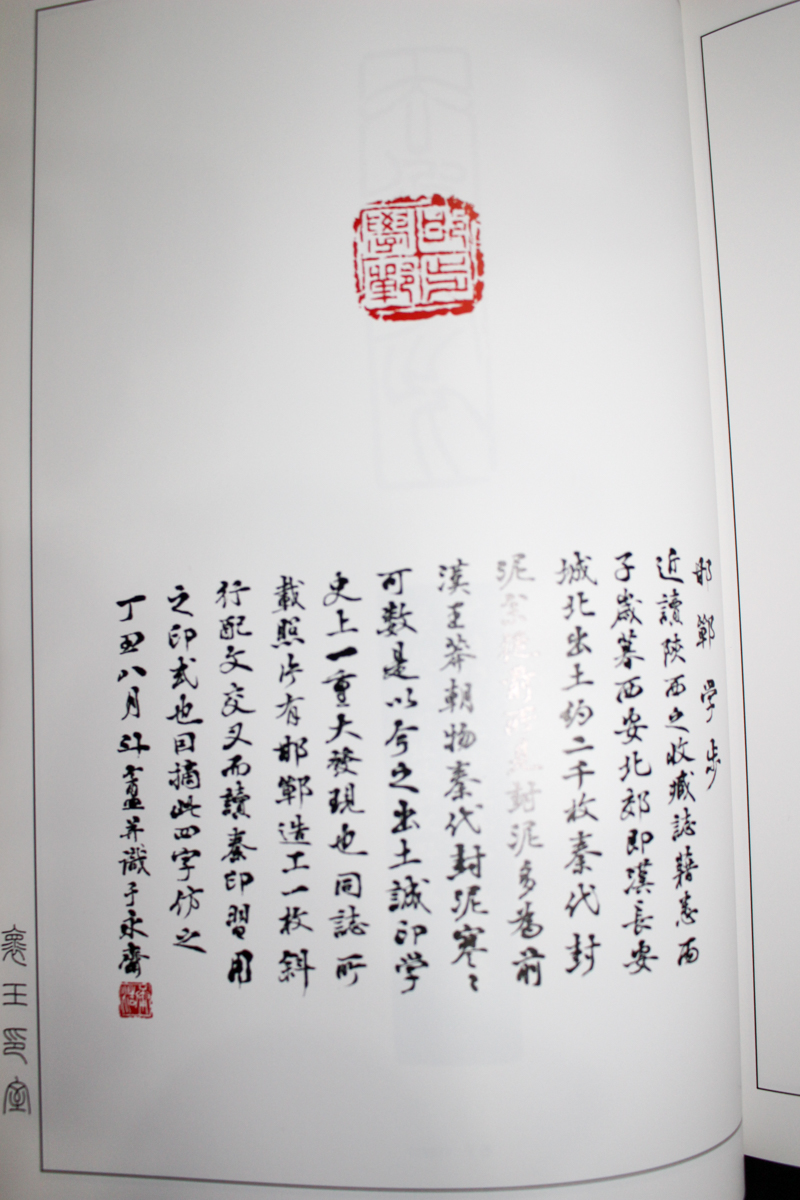 邯鄲學步
邯鄲学步
近讀陝西之收臧誌藉悉丙
子歲暮西安北郊即漢長安
城北出土約二千枚秦代封
泥余從前所見封泥多為前
漢王莽朝物秦代封泥寥〻
可數是以今之出土誠印学
史上一重大發現也同誌所
載照片有邯鄲造工一枚斜
行配文交叉而讀秦印習用
之印式也因摘此四字仿之
丁丑八月斗盦并識于永齋
襄王印室